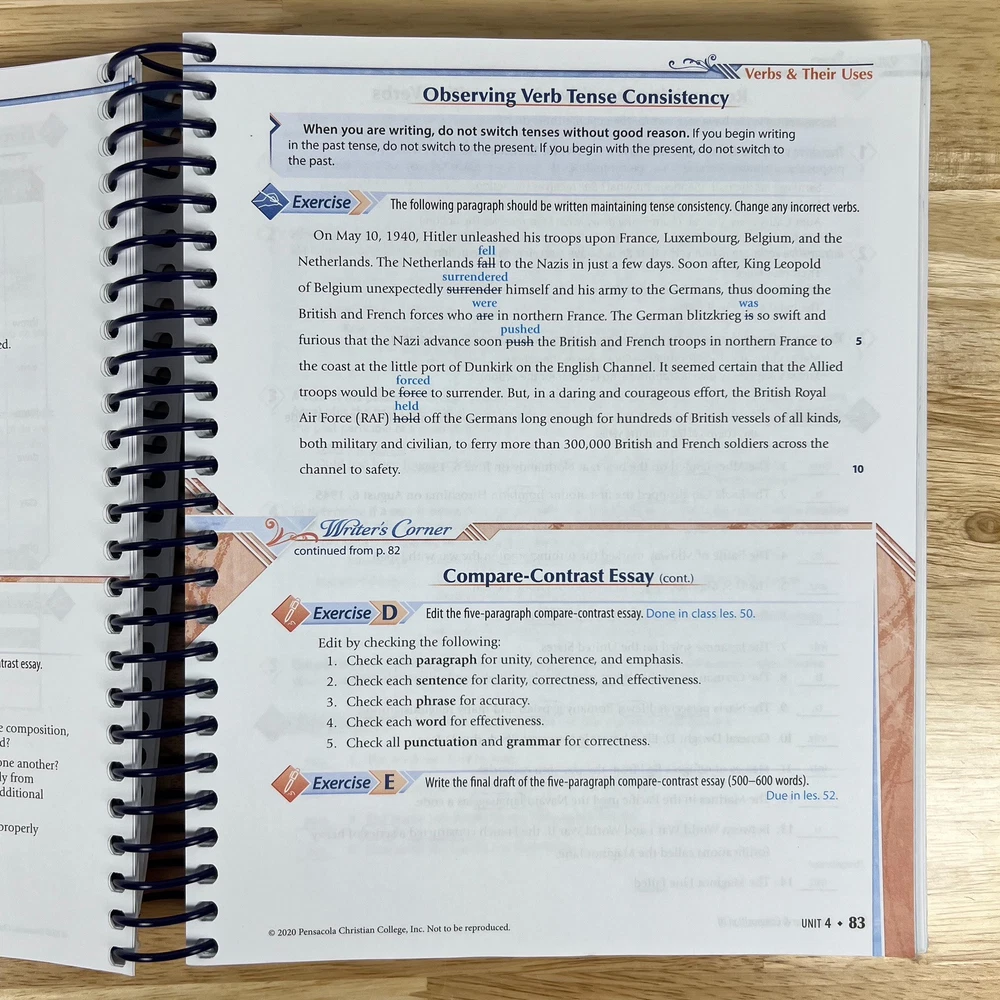 Verbs & Their Uses
Observing Verb Tense Consistency
When you are writing, do not switch tenses without good reason. If you begin writing
in the past tense, do not switch to the present. If you begin with the present, do not switch to
the past.
Exercise The following paragraph should be written maintaining tense consistency. Change any incorrect verbs.
On May 10, 1940, Hitler unleashed his troops upon France, Luxembourg, Belgium, and the
fell
Netherlands. The Netherlands fall to the Nazis in just a few days. Soon after, King Leopold
surrendered
of Belgium unexpectedly surrender himself and his army to the Germans, thus dooming the
were was
British and French forces who are in northern France. The German blitzkrieg is so swift and
pushed
furious that the Nazi advance soon push the British and French troops in northern France to 5
the coast at the little port of Dunkirk on the English Channel. It seemed certain that the Allied
forced
troops would be force to surrender. But, in a daring and courageous effort, the British Royal
held
Air Force (RAF) hold off the Germans long enough for hundreds of British vessels of all kinds,
both military and civilian, to ferry more than 300,000 British and French soldiers across the
channel to safety. 10
Writer's Corner
continued from p. 82
Compare-Contrast Essay (cont.)
Exercise D Edit the five-paragraph compare-contrast essay. Done in class les. 50.
Edit by checking the following:
1. Check each paragraph for unity, coherence, and emphasis.
2. Check each sentence for clarity, correctness, and effectiveness.
3. Check each phrase for accuracy.
4. Check each word for effectiveness.
5. Check all punctuation and grammar for correctness.
Exercise E Write the final draft of the five-paragraph compare-contrast essay (500–600 words).
Due in les. 52.
© 2020 Pensacola Christian College, Inc. Not to be reproduced.
UNIT 4 • 83
essay.
composition,
one another?
from
additional
properly